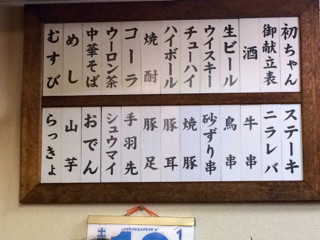 初ちゃん
御献立表
酒
生ビール
ウイスキー
チューハイ
ハイボール
焼酎
コーラ
ウーロン茶
中華そば
めし
むすび
ステーキ
ニラレバ
牛串
鳥串
砂ずり串
焼豚
豚耳
豚足
手羽先
シュウマイ
おでん
山芋
らっきょ
JANUARY
1